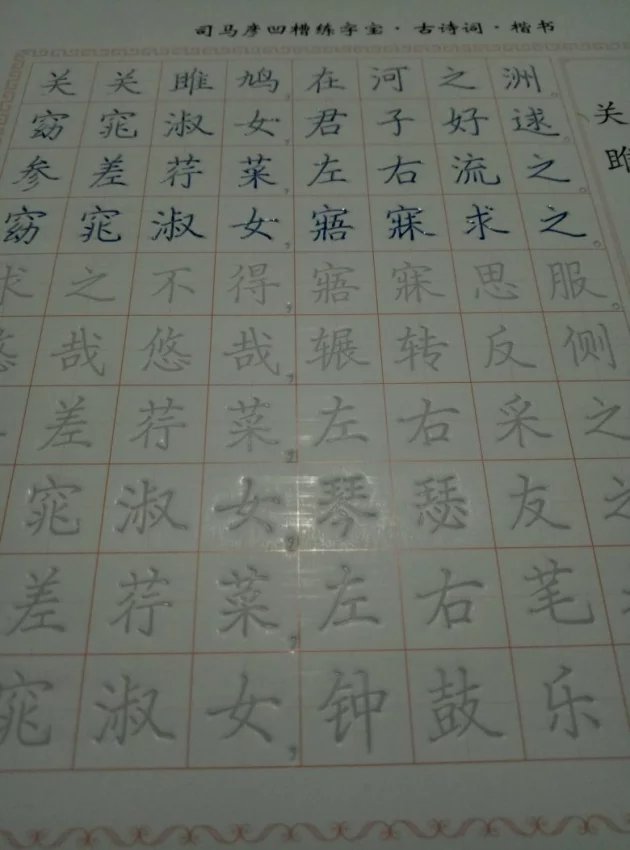 司马彦凹槽练字宝·古诗词·楷书
关关雎鸠,在河之洲。
窈窕淑女,君子好逑。
参差荇菜,左右流之。
窈窕淑女,寤寐求之。
求之不得,寤寐思服。
悠哉悠哉,辗转反侧
差荇菜,左右采之
窕淑女,琴瑟友之
差荇菜,左右芼
窕淑女,钟鼓乐
关
雎